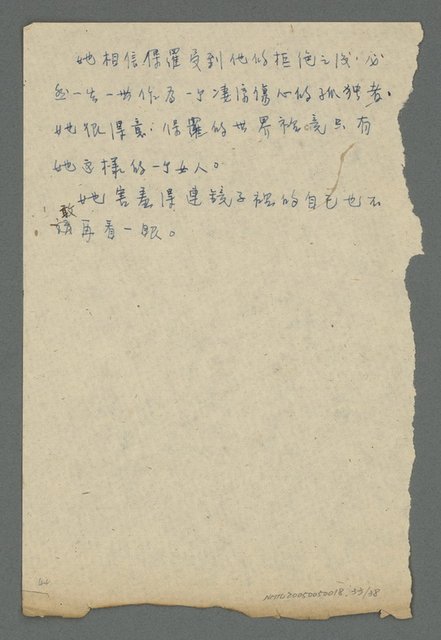 她相信保羅受到他的拒絕之後，必
然一生一世作為一个凄涼傷心的孤独者，
她很得意：保羅的世界裡竟只有
她這樣的一个女人。
她害羞得連鏡子裡的自己也不
敢
再看一眼。
44
NMTL20050050018.33/38